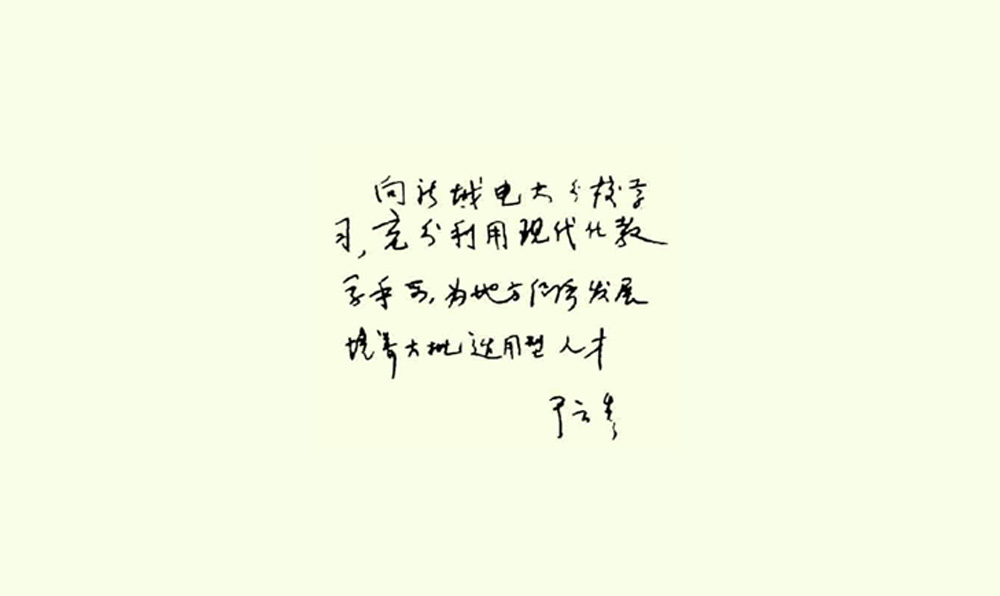 向新城电大分校学
习，充分利用现代化教
学手段，为地方经济发展
培养大批适用型人才